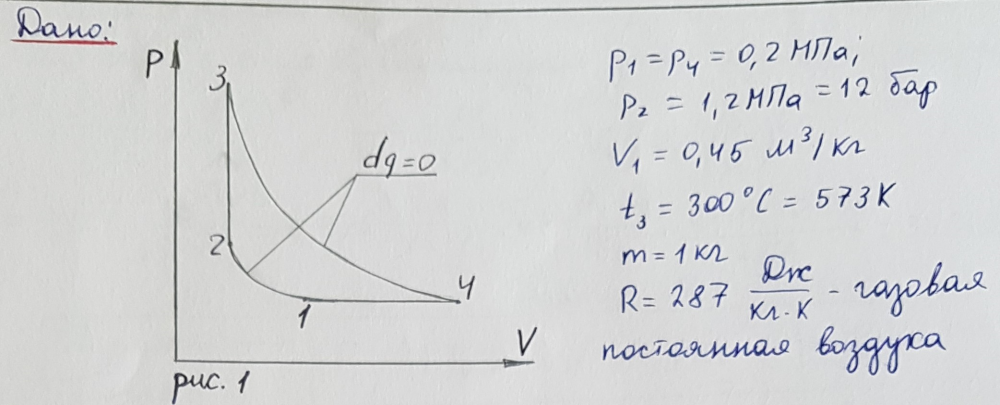 Дано:
P
3
dq=0
2
1
4
V
рис. 1
P₁ = P₄ = 0,2 МПа;
P₂ = 1,2 МПа = 12 бар
V₁ = 0,45 м³/кг
t₃ = 300°С = 573 К
m = 1 кг
R = 287 Дж/кг·К - газовая
постоянная воздуха